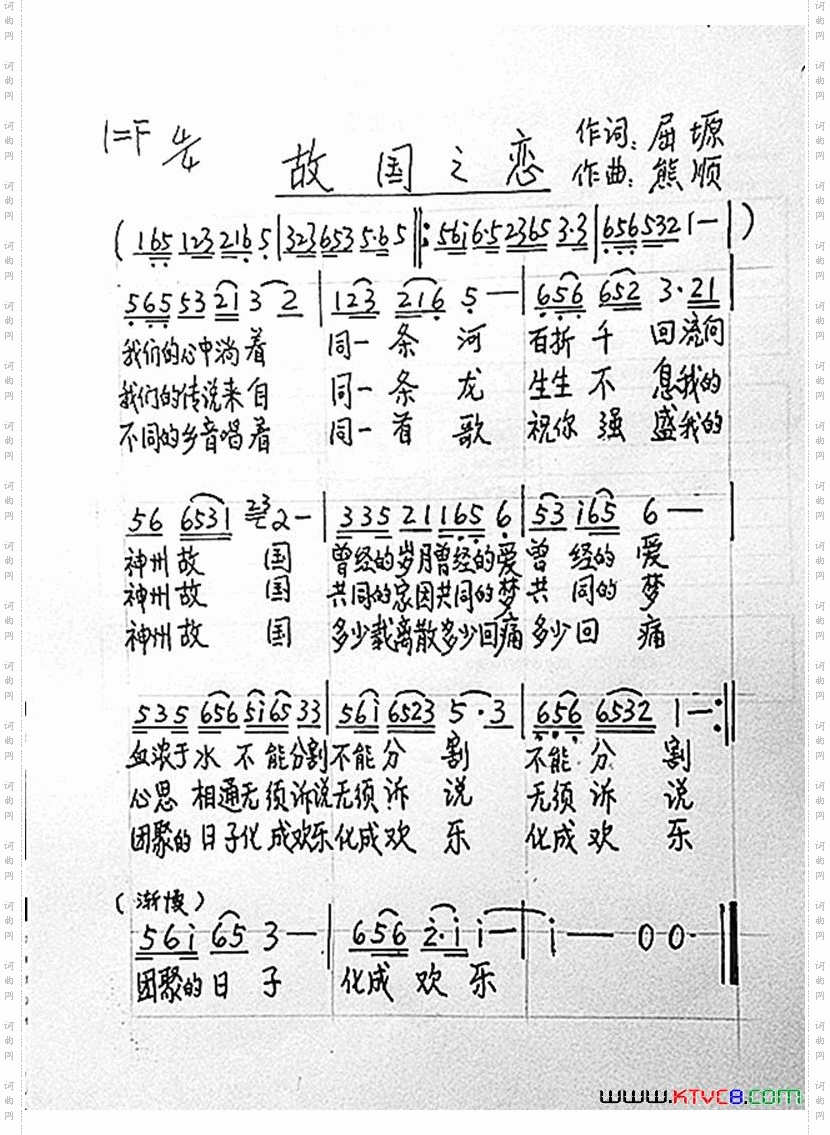 1=F 4/4
故国之恋
作词：屈塬
作曲：熊顺
( 165 123 216 5 | 323 653 5·6 5 ‖: 56i 6·5 2365 3·3 | 656 532 1 — | )
565 53 21 3 2 | 123 216 5 — | 656 652 3·21 |
我们的心中淌着 同一条河 百折千回流向
我们的传说来自 同一条龙 生生不息我的
不同的乡音唱着 同一首歌 祝你强盛我的
56 6531 23 2 — | 335 21 165 6 | 53 i65 6 — |
神州故国 曾经的岁月曾经的爱 曾经的爱
神州故国 共同的家园共同的梦 共同的梦
神州故国 多少载离散多少回痛 多少回痛
535 656 5i65 33 | 56i 6523 5·3 | 656 6532 1 — :‖
血浓于水不能分割 不能分割 不能分割
心思相通无须诉说 无须诉说 无须诉说
团聚的日子化成欢乐 化成欢乐 化成欢乐
(渐慢)
56i 65 3 — | 656 2·i i — | i — 0 0 ‖
团聚的日子 化成欢乐
www.KTVC8.com
词曲网